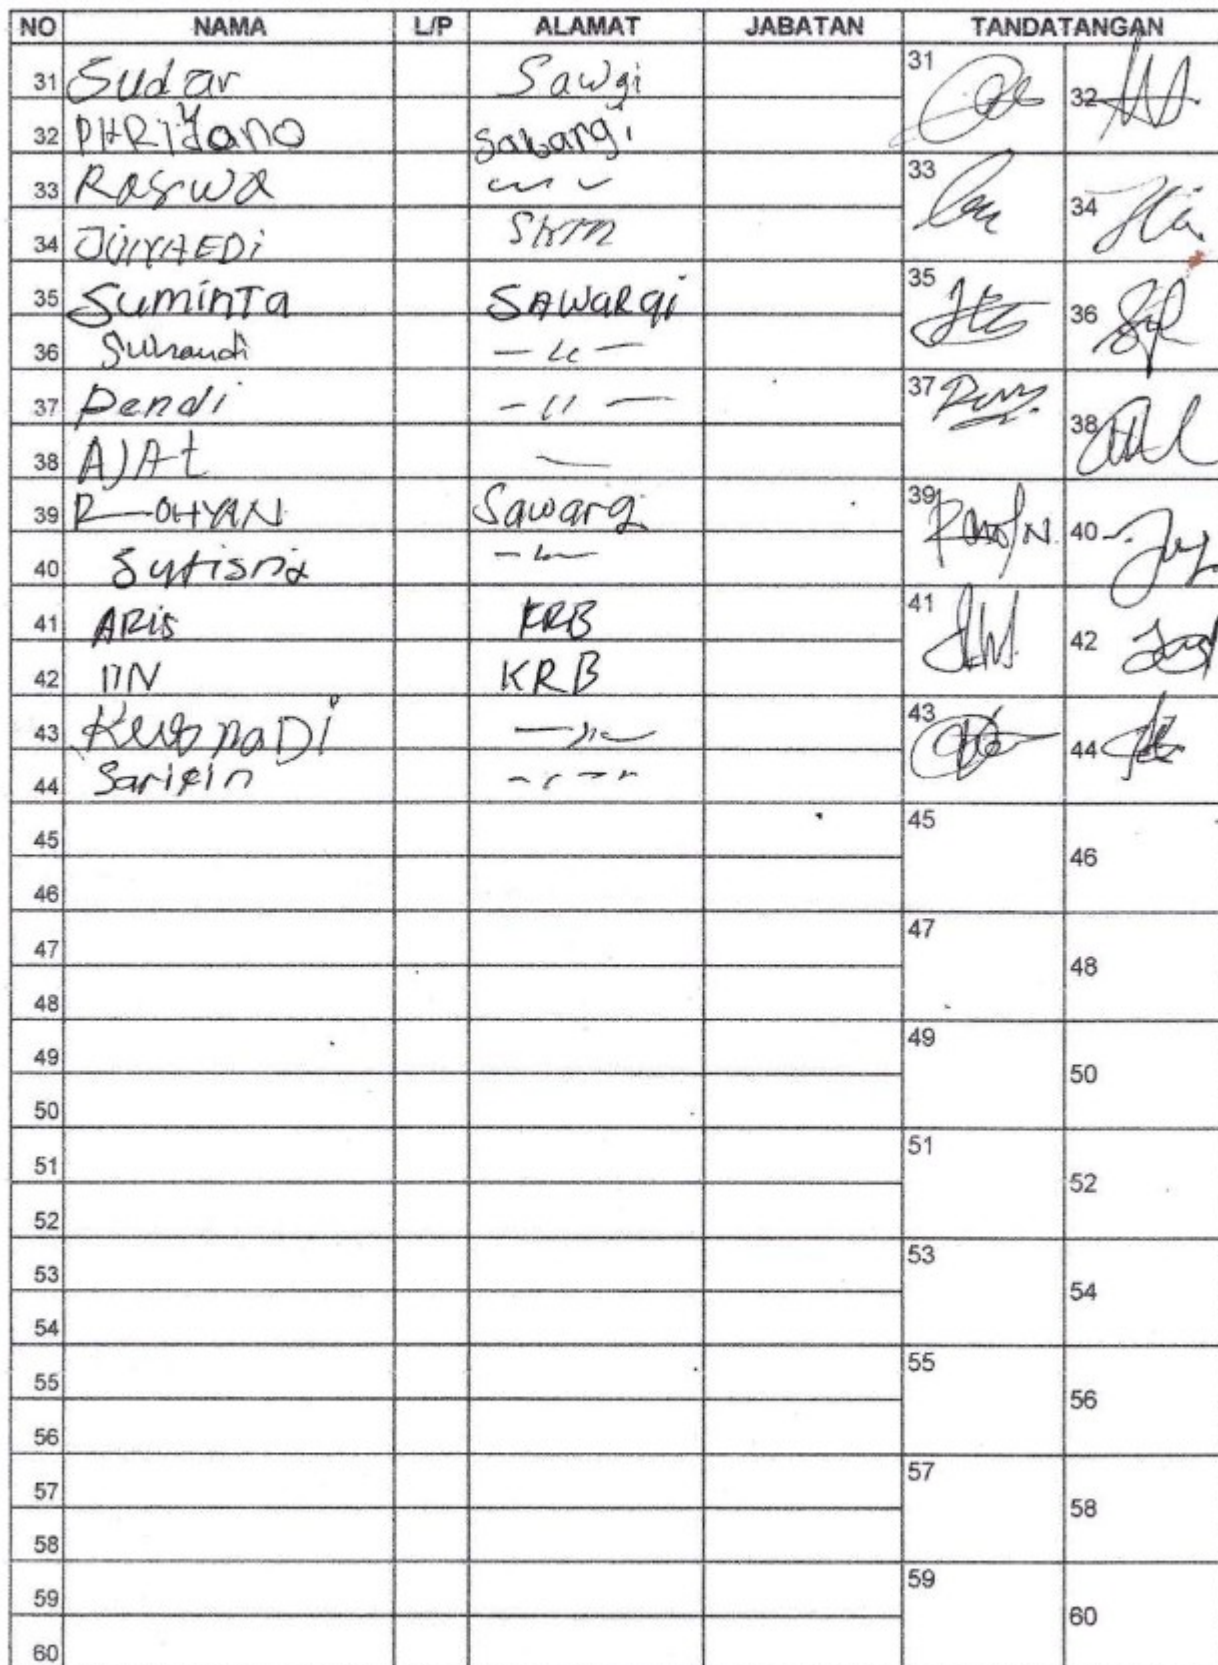 NO NAMA L/P ALAMAT JABATAN TANDATANGAN
31 Sudar Sawgi 31
32 PHRIyano Sawargi 32
33 Raswa 33
34 JUNAEDi SKM 34
35 Suminta SAWARgi 35
36 Suhandi — 〃 — 36
37 Dendi — 〃 — 37
38 AJAt — 38
39 ROHYAN Sawarg 39
40 Sutisna 40
41 ARis KRB 41
42 IIN KRB 42
43 KusnaDi — 〃 — 43
44 Saripin 44
45 45
46 46
47 47
48 48
49 49
50 50
51 51
52 52
53 53
54 54
55 55
56 56
57 57
58 58
59 59
60 60